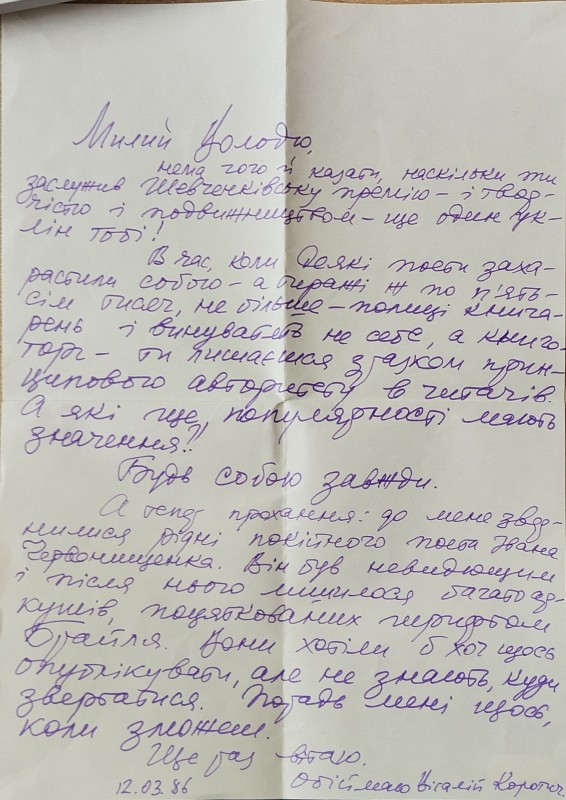 Милий Володю,
нема чого й казати, наскільки ти
заслужив Шевченківську премію – і твор-
чістю і подвижництвом – ще один ук-
лін тобі!
В час, коли деякі поети заха-
растили собою – а тиражі ж по п'ять-
сім тисяч, не більше – полиці книга-
рень і винуватять не себе, а книго-
торг – ти лишаєшся зразком прин-
ципового авторитету в читачів.
А які ще популярності мають
значення?!
Будь собою завжди.
А тепер прохання: до мене звер-
нилися рідні покійного поета Івана
Він був невидющим
і після нього лишилося багато ар-
кушів, поцяткованих шрифтом
Брайля. Вони хотіли б хоч щось
опублікувати, але не знають, куди
звертатися. Порадь мені щось,
коли зможеш.
Ще раз вітаю.
Обіймаю Віталій Коротич.
12.03.86